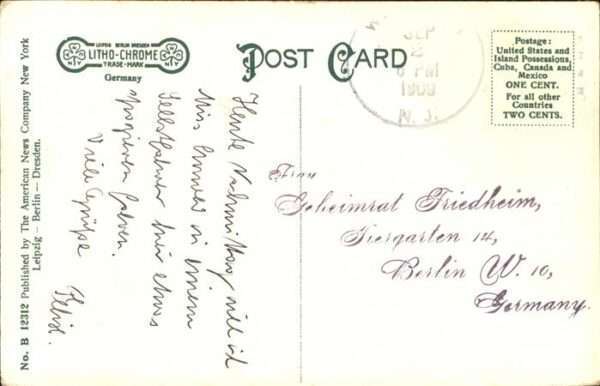 No. B 12312 Published by The American News Company New York
Leipzig — Berlin — Dresden.
LEIPZIG BERLIN DRESDEN
LITHO-CHROME
TRADE-MARK
N Y
N Y
Germany
POST CARD
SEP
2
6 PM
1909
N. J.
Postage:
United States and
Island Possessions,
Cuba, Canada and
Mexico
ONE CENT.
For all other
Countries
TWO CENTS.
Heute Nachmittag will ich
Miss in einem
Selbstfahrer hier etwas
spazieren fahren.
Viele Grüsse
Felix.
Frau
Geheimrat Friedheim,
Tiergarten 14,
Berlin W. 10,
Germany.